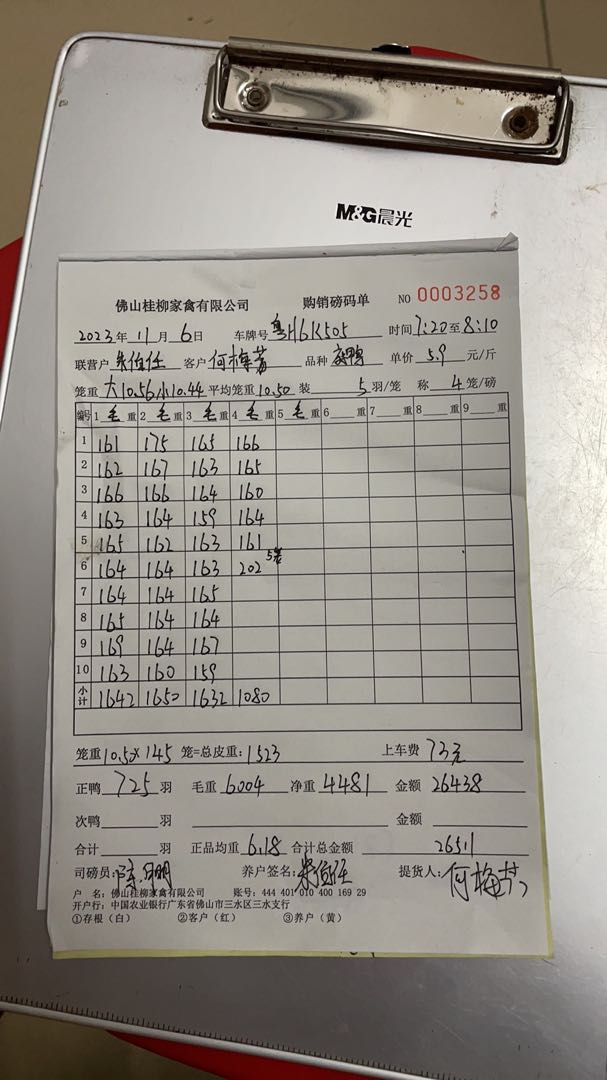 M&G晨光
佛山桂柳家禽有限公司 购销磅码单 NO 0003258
2023年 11月 6日 车牌号 粤H6K505 时间 7:20至8:10
联营户 客户 何梅芳 品种 单价 5.9 元/斤
笼重 大10.56小10.44 平均笼重 10.50 装 5 羽/笼 称 4 笼/磅
编号 1 毛 重 2 毛 重 3 毛 重 4 毛 重 5 毛 重 6 重 7 重 8 重 9 重
1 161 175 165 166
2 162 167 163 165
3 166 166 164 160
4 163 164 159 164
5 165 162 163 161
6 164 164 163 202 5笼
7 164 164 165
8 165 164 164
9 169 164 167
10 163 160 159
小计 1642 1650 1632 1080
笼重 10.50×145 笼=总皮重: 1523 上车费 73元
正鸭 725 羽 毛重 6004 净重 4481 金额 26438
次鸭 羽 金额
合计 羽 正品均重 6.18 合计总金额 26511
司磅员: 养户签名: 提货人: 何梅芳
户 名: 佛山桂柳家禽有限公司 账号: 444 401 010 400 169 29
开户行: 中国农业银行广东省佛山市三水区三水支行
①存根（白） ②客户（红） ③养户（黄）